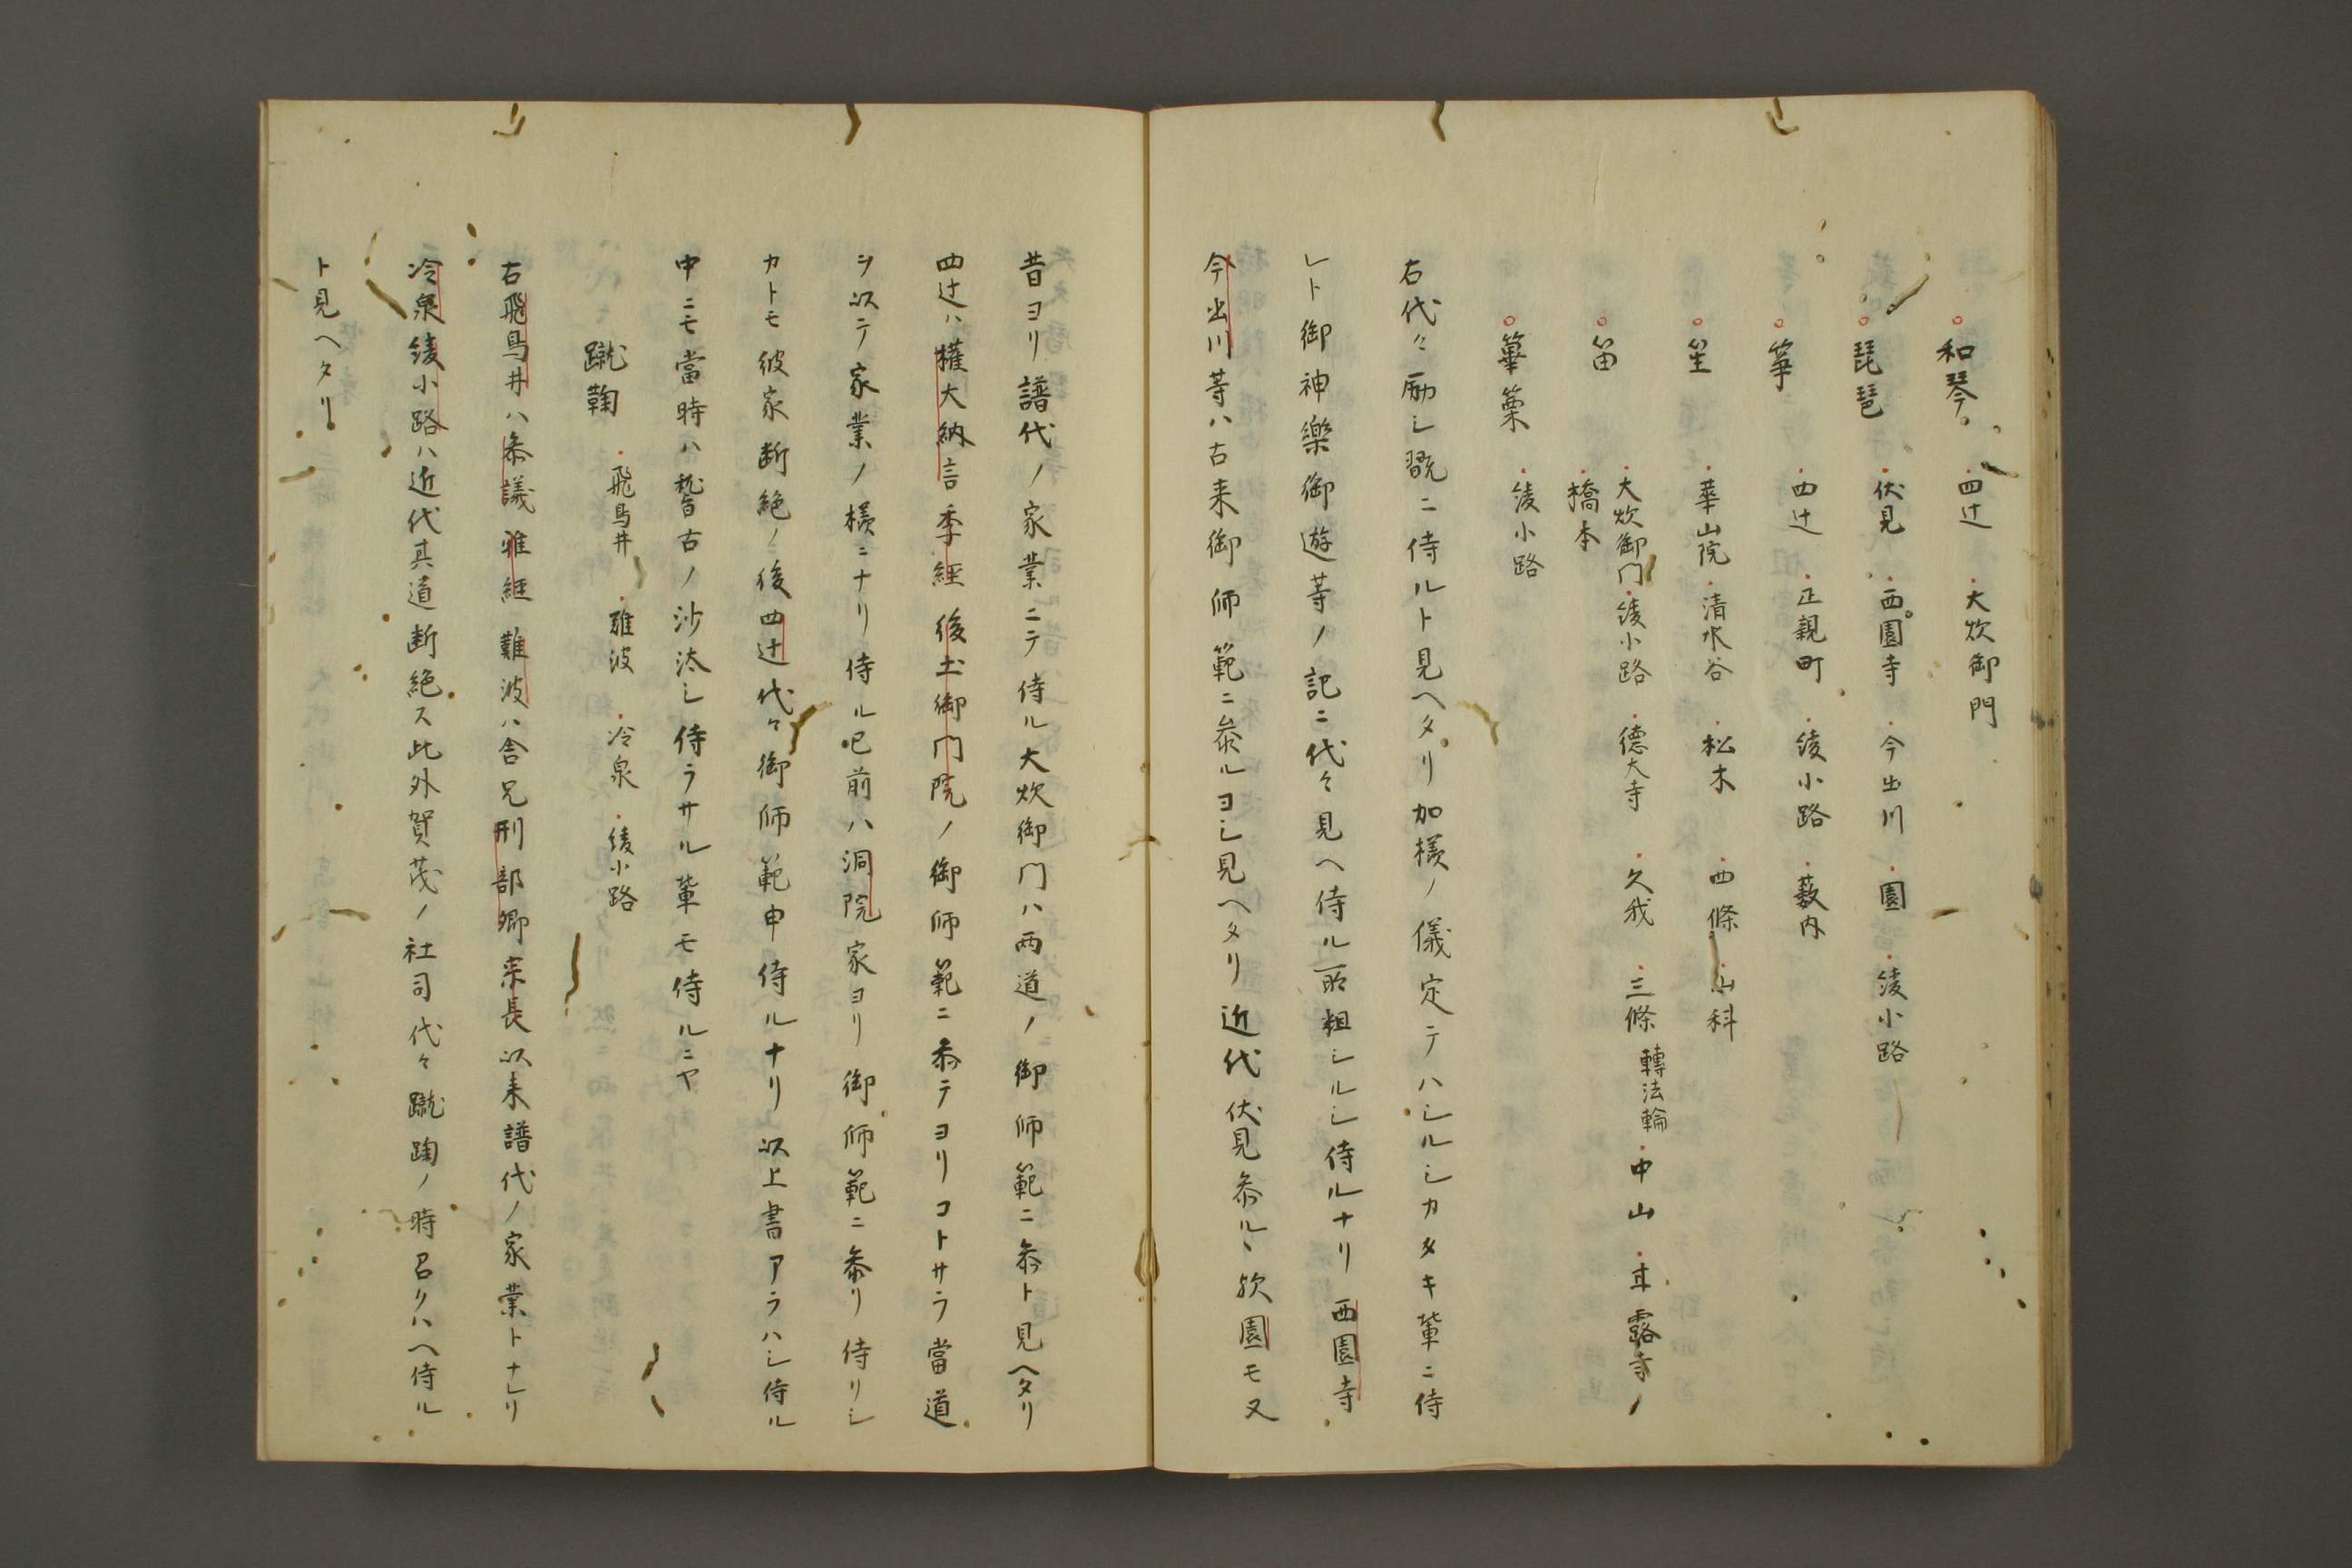 和琴　四辻　大炊御門
琵琶　伏見　西園寺　今出川　園　綾小路
箏　四辻　正親町　綾小路　薮内
笙　華山院　清水谷　松木　四條　山科
笛　大炊御門　綾小路　徳大寺　久我　三條 轉法輪　中山　甘露寺ノ
橋本
篳篥　綾小路
右代々励シ翫ニ侍ルト見ヘタリ加様ノ儀定テハシルシカタキ輩ニ侍
レト御神樂御遊等ノ記ニ代々見ヘ侍ル所粗シルシ侍ルナリ西園寺
今出川等ハ古来御師範ニ参ルヨシ見ヘタリ近代伏見参ルヽ欤園モ又
昔ヨリ譜代ノ家業ニテ侍ル大炊御門ハ両道ノ御師範ニ参ト見ヘタリ
四辻ハ權大納言季經後土御門院ノ御師範ニ参テヨリコトサラ當道
ヲ以テ家業ノ様ニナリ侍ル已前ハ洞院家ヨリ御師範ニ参リ侍リシ
カトモ彼家断絶ノ後四辻代々御師範申侍ルナリ以上書アラハシ侍ル
中ニモ當時ハ稽古ノ沙汰シ侍ラサル輩モ侍ルニヤ
蹴鞠　飛鳥井　難波　冷泉　綾小路
右飛鳥井ハ参議雅經難波ハ舎兄刑部卿宗長以来譜代ノ家業トナレリ
冷泉綾小路ハ近代其道断絶ス此外賀茂ノ社司代々蹴鞠ノ時召クハヘ侍ル
ト見ヘタリ